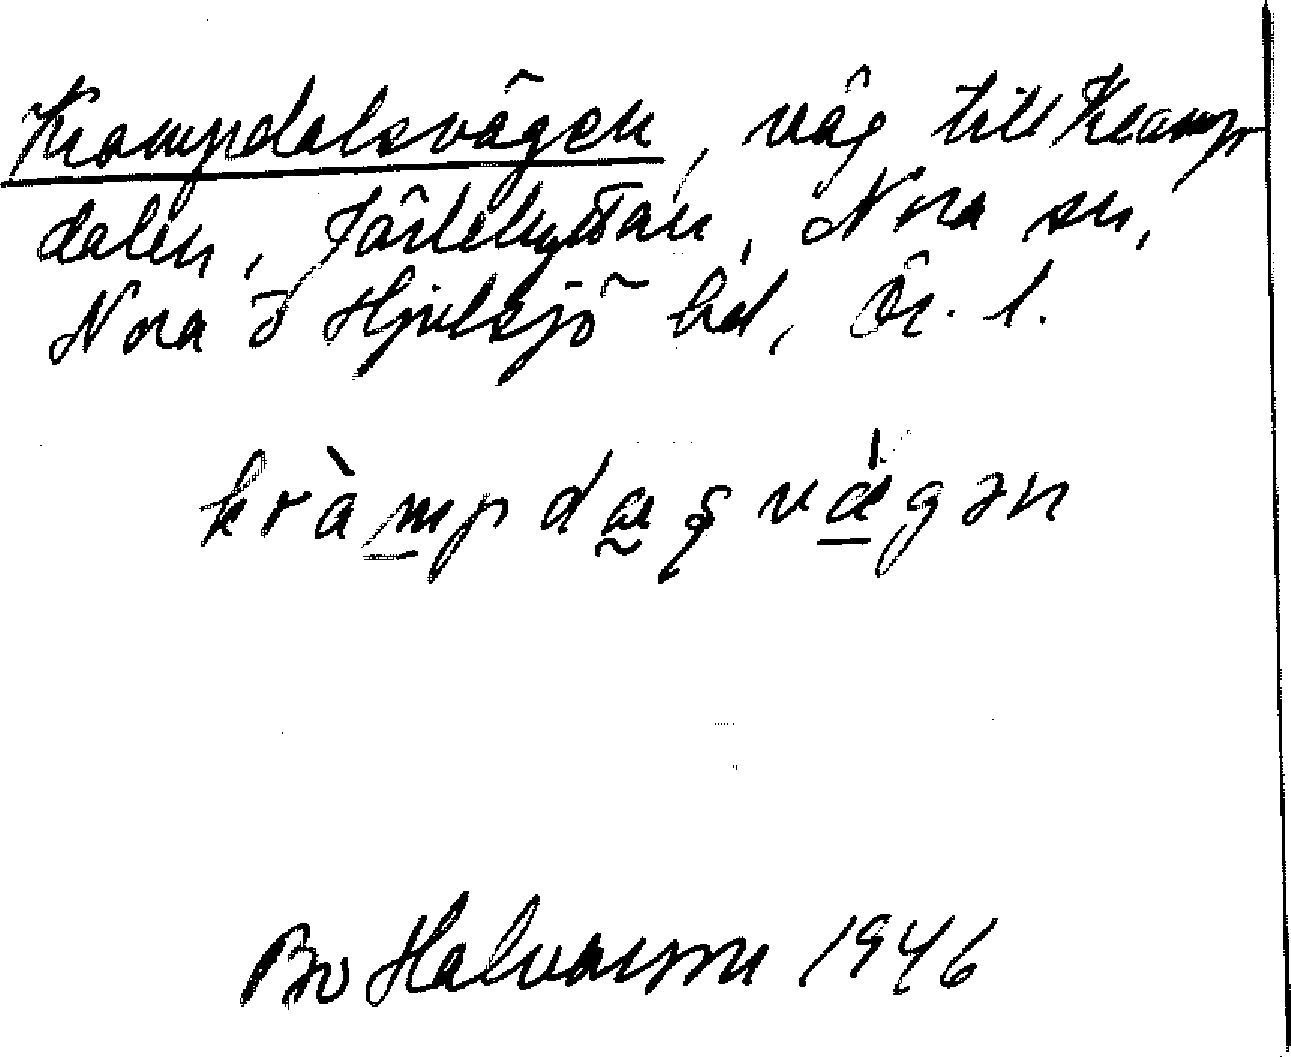 Krampdalsvägen, väg till Kramp
dalen, Järlehyttan, Nora sn,
Nora o Hjulsjö hd, Ör. l.
kràmpdaʂvägən
Bo Halvarson 1946